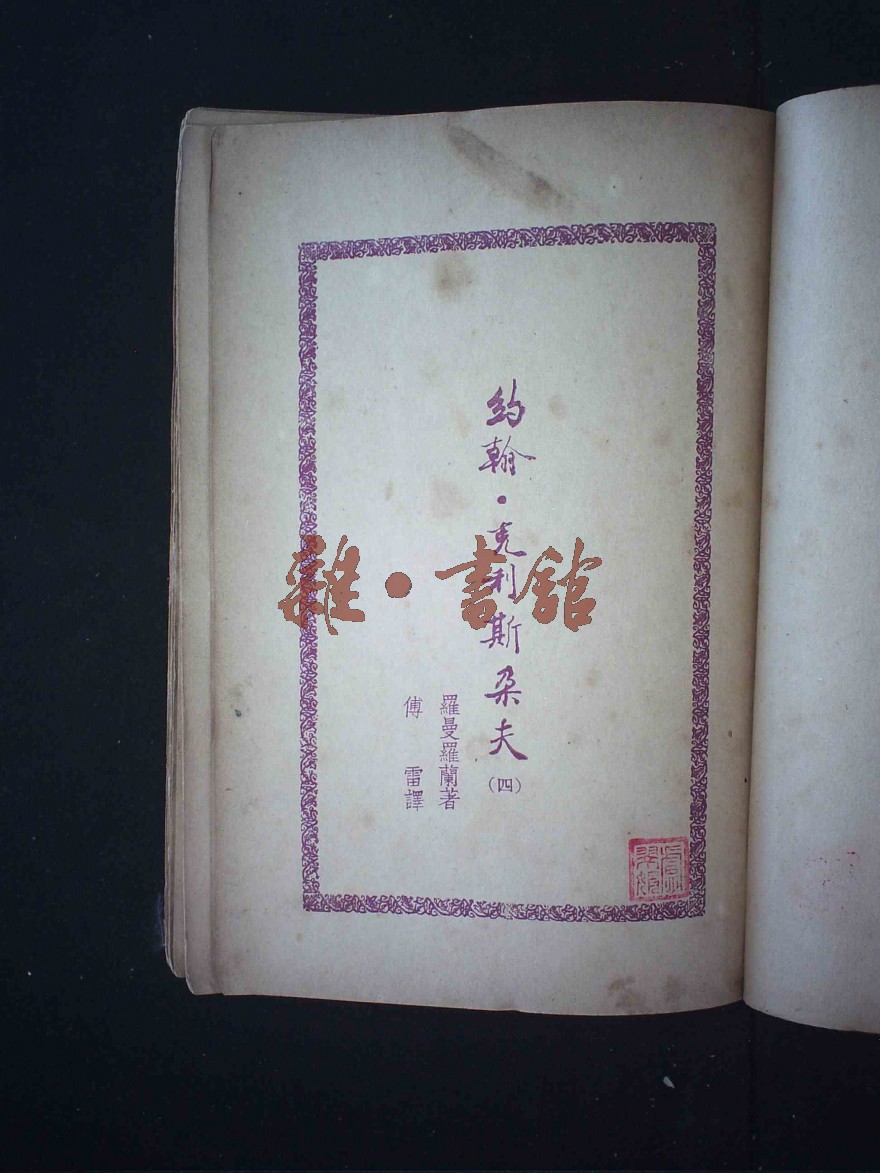 約翰・克利斯朵夫
(四)
羅曼羅蘭著
傅雷譯
雜・書舘